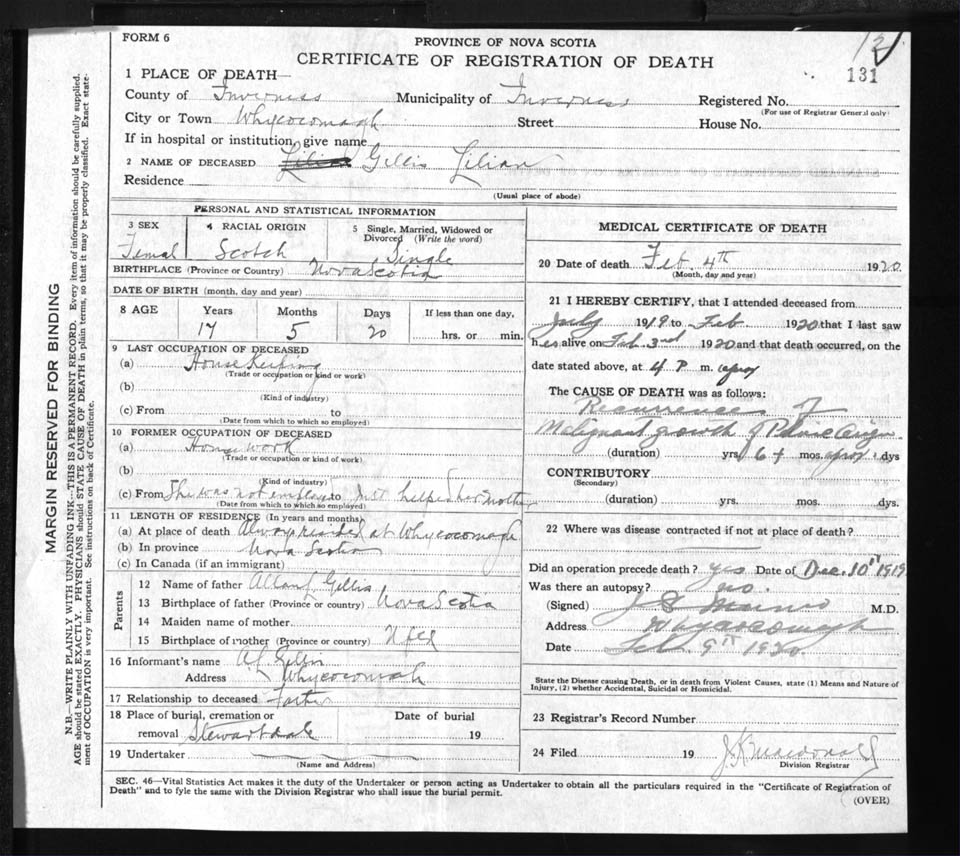 FORM 6
PROVINCE OF NOVA SCOTIA
CERTIFICATE OF REGISTRATION OF DEATH
131
1 PLACE OF DEATH—
County of Inverness Municipality of Inverness Registered No.
(For use of Registrar General only)
City or Town Whycocomagh Street House No.
If in hospital or institution, give name
2 NAME OF DECEASED Gillis Lilian
Residence
(Usual place of abode)
PERSONAL AND STATISTICAL INFORMATION
3 SEX 4 RACIAL ORIGIN 5 Single, Married, Widowed or Divorced (Write the word)
Femal Scotch Single
BIRTHPLACE (Province or Country) Nova Scotia
DATE OF BIRTH (month, day and year)
8 AGE Years Months Days If less than one day,
17 5 20 hrs. or min.
9 LAST OCCUPATION OF DECEASED
(a) House Keeping
(Trade or occupation or kind or work)
(b)
(Kind of industry)
(c) From to
(Date from which to which so employed)
10 FORMER OCCUPATION OF DECEASED
(a) House work
(Trade or occupation or kind of work)
(b)
(Kind of industry)
(c) From She was not employed to Just helped her Mother
(Date from which to which so employed)
11 LENGTH OF RESIDENCE (In years and months)
(a) At place of death Always resided at Whycocomagh
(b) In province Nova Scotia
(c) In Canada (if an immigrant)
Parents
12 Name of father Allan J Gillis
13 Birthplace of father (Province or country) Nova Scotia
14 Maiden name of mother
15 Birthplace of mother (Province or country) Nfld
16 Informant's name A J Gillis
Address Whycocomagh
17 Relationship to deceased Father
18 Place of burial, cremation or removal Stewartdale Date of burial 19
19 Undertaker
(Name and Address)
MEDICAL CERTIFICATE OF DEATH
20 Date of death Feb. 4th 1920
(Month, day and year)
21 I HEREBY CERTIFY, that I attended deceased from
July 1919 to Feb 1920 that I last saw
h er alive on Feb. 3rd 1920 and that death occurred, on the
date stated above, at 4 P. m.
The CAUSE OF DEATH was as follows:
Recurrence of
Malignant growth of Pelvic
(duration) yrs. 6 + mos. dys
CONTRIBUTORY
(Secondary)
(duration) yrs. mos. dys.
22 Where was disease contracted if not at place of death?
Did an operation precede death? yes Date of Dec. 10th 1919
Was there an autopsy? no.
(Signed) M.D.
Address Whycocomagh
Date Feb. 9th 1920.
State the Disease causing Death, or in death from Violent Causes, state (1) Means and Nature of
Injury, (2) whether Accidental, Suicidal or Homicidal.
23 Registrar's Record Number
24 Filed 19 J. K. Macdonald
Division Registrar
SEC. 46—Vital Statistics Act makes it the duty of the Undertaker or person acting as Undertaker to obtain all the particulars required in the "Certificate of Registration of
Death" and to fyle the same with the Division Registrar who shall issue the burial permit.
(OVER)
MARGIN RESERVED FOR BINDING
N.B.—WRITE PLAINLY WITH UNFADING INK—THIS IS A PERMANENT RECORD. Every item of information should be carefully supplied.
AGE should be stated EXACTLY. PHYSICIANS should STATE CAUSE OF DEATH in plain terms, so that it may be properly classified. Exact state-
ment of OCCUPATION is very important. See instructions on back of Certificate.